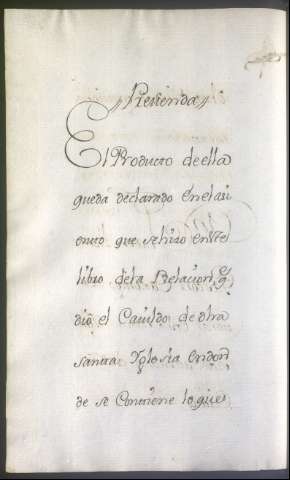 "Prevenda"
El Producto deella
queda declarado Enelau
mento que se hizo eneste
libro dela Relacion q.
dio el Cavildo de dha
santa Yglesia endon
de se Contiene loque